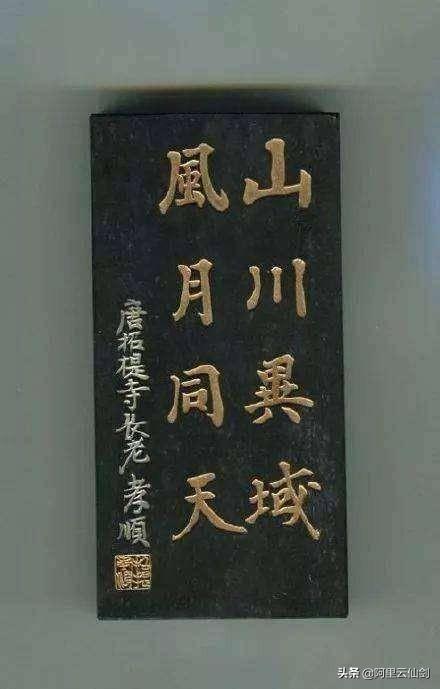 山川異域
風月同天
唐拓提寺長老 孝順
头条 @阿里云仙剑